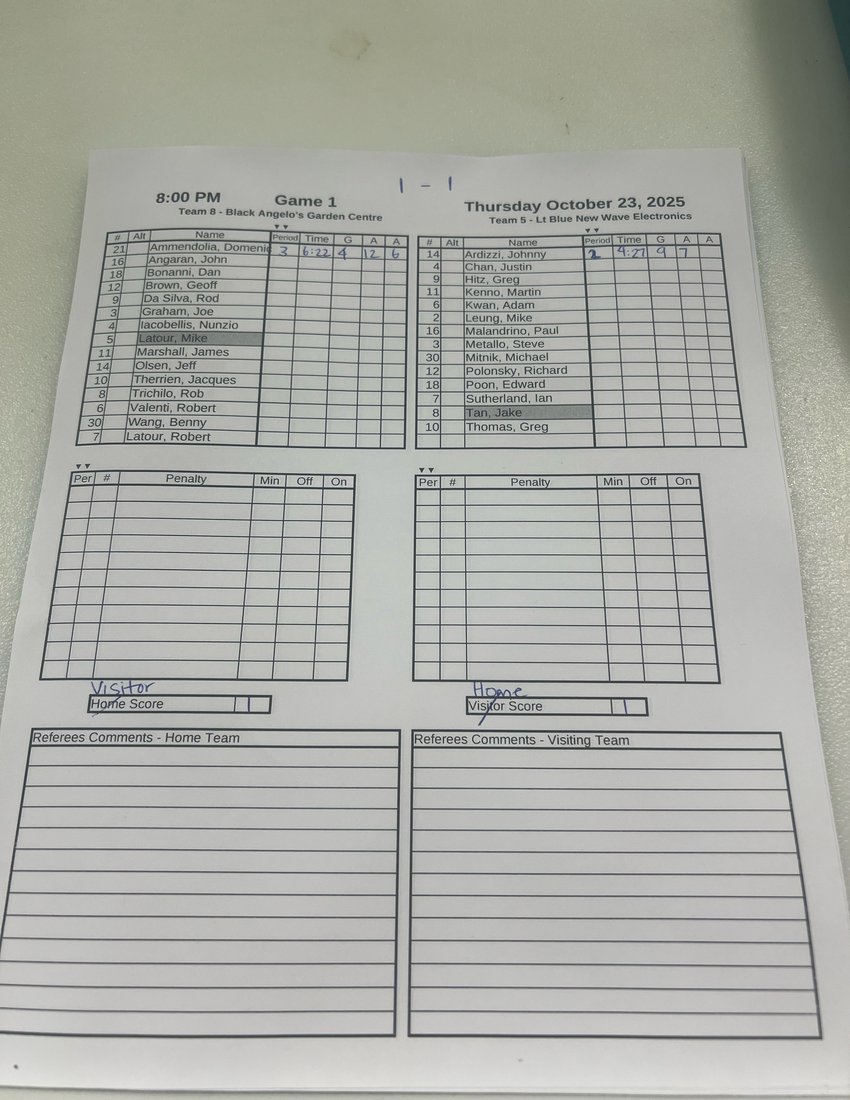 1 - 1
8:00 PM Game 1
Team 8 - Black Angelo's Garden Centre
▼▼
# Alt Name Period Time G A A
21 Ammendolia, Domenic 3 6:22 4 12 6
16 Angaran, John
18 Bonanni, Dan
12 Brown, Geoff
9 Da Silva, Rod
3 Graham, Joe
4 Iacobellis, Nunzio
5 Latour, Mike
11 Marshall, James
14 Olsen, Jeff
10 Therrien, Jacques
8 Trichilo, Rob
6 Valenti, Robert
30 Wang, Benny
7 Latour, Robert
Thursday October 23, 2025
Team 5 - Lt Blue New Wave Electronics
▼▼
# Alt Name Period Time G A A
14 Ardizzi, Johnny 2 4:27 9 7
4 Chan, Justin
9 Hitz, Greg
11 Kenno, Martin
6 Kwan, Adam
2 Leung, Mike
16 Malandrino, Paul
3 Metallo, Steve
30 Mitnik, Michael
12 Polonsky, Richard
18 Poon, Edward
7 Sutherland, Ian
8 Tan, Jake
10 Thomas, Greg
▼▼
Per # Penalty Min Off On
▼▼
Per # Penalty Min Off On
Visitor
Home Score 1
Home
Visitor Score 1
Referees Comments - Home Team
Referees Comments - Visiting Team